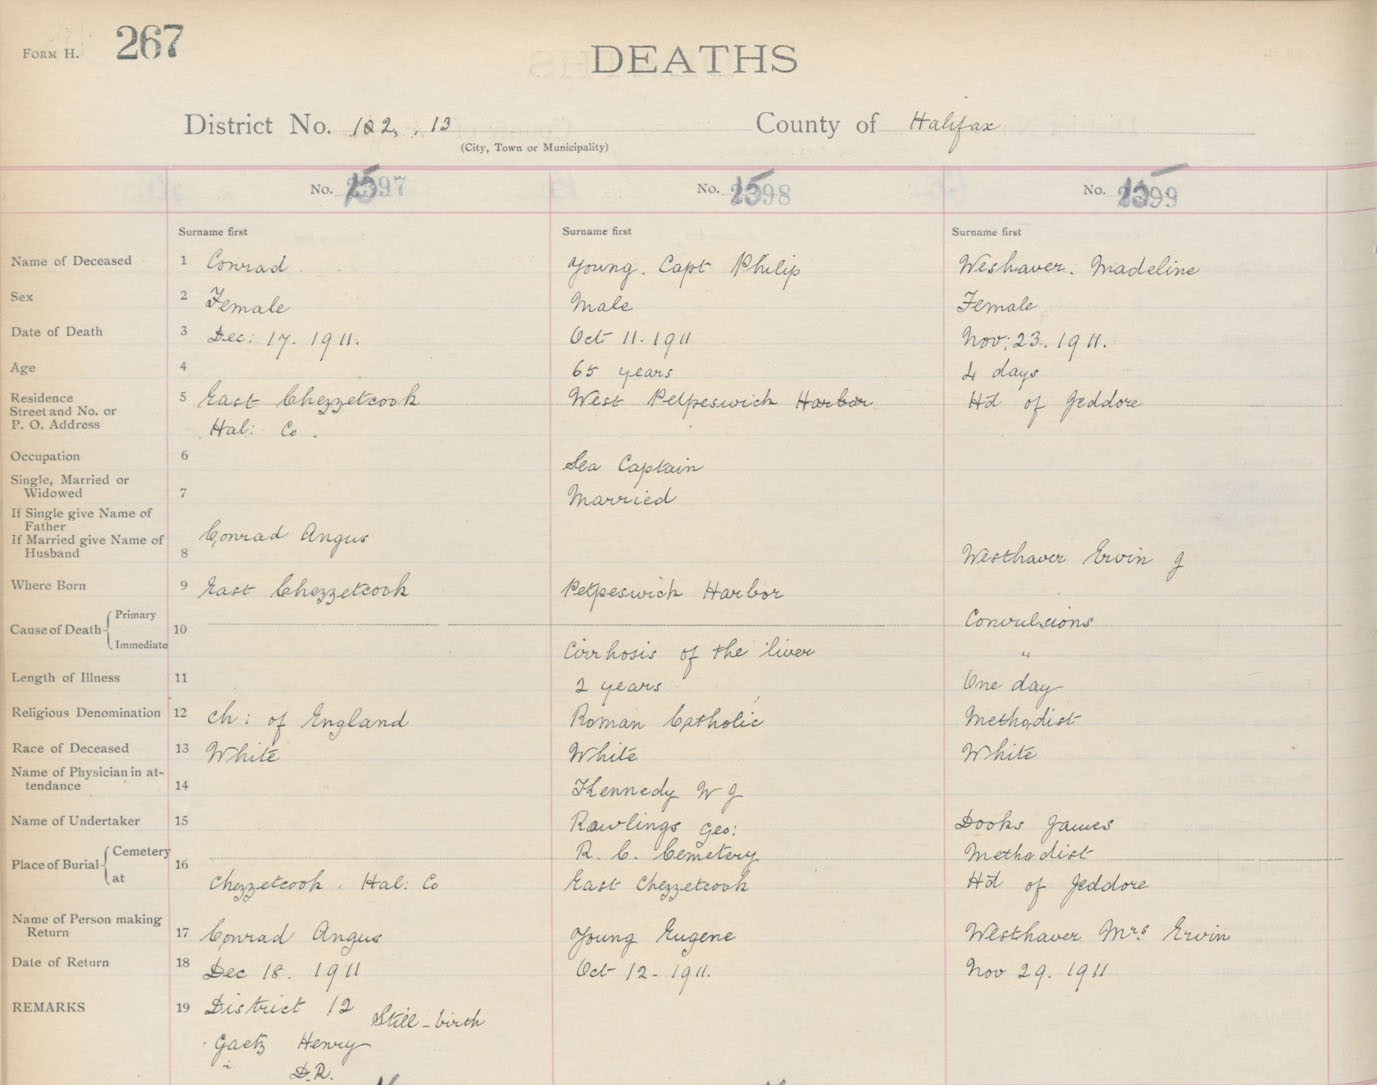 FORM H. 267
DEATHS
District No. 12, 13 County of Halifax
(City, Town or Municipality)
No. 1597 No. 1598 No. 1599
Surname first Surname first Surname first
Name of Deceased 1 Conrad Young. Capt Philip Weshaver. Madeline
Sex 2 Female Male Female
Date of Death 3 Dec: 17. 1911. Oct 11. 1911 Nov: 23. 1911.
Age 4 65 years 4 days
Residence 5 East Chezzetcook West Petpeswick Harbor Hd of Jeddore
Street and No. or
P. O. Address Hal: Co.
Occupation 6 Sea Captain
Single, Married or
Widowed 7 Married
If Single give Name of
Father
If Married give Name of Conrad Angus
Husband 8 Westhaver Ervin J
Where Born 9 East Chezzetcook Petpeswick Harbor
Cause of Death Primary 10 Convulsions
Immediate Cirrhosis of the liver "
Length of Illness 11 2 years One day
Religious Denomination 12 Ch: of England Roman Catholic Methodist
Race of Deceased 13 White White White
Name of Physician in at-
tendance 14 Kennedy W J
Name of Undertaker 15 Rawlings Geo: Dooks James
Place of Burial Cemetery 16 R. C. Cemetery Methodist
at Chezzetcook. Hal: Co East Chezzetcook Hd of Jeddore
Name of Person making
Return 17 Conrad Angus Young Eugene Westhaver Mrs Ervin
Date of Return 18 Dec 18. 1911 Oct 12 - 1911. Nov 29. 1911
REMARKS 19 District 12 Still-birth
Gaetz Henry
D.R.